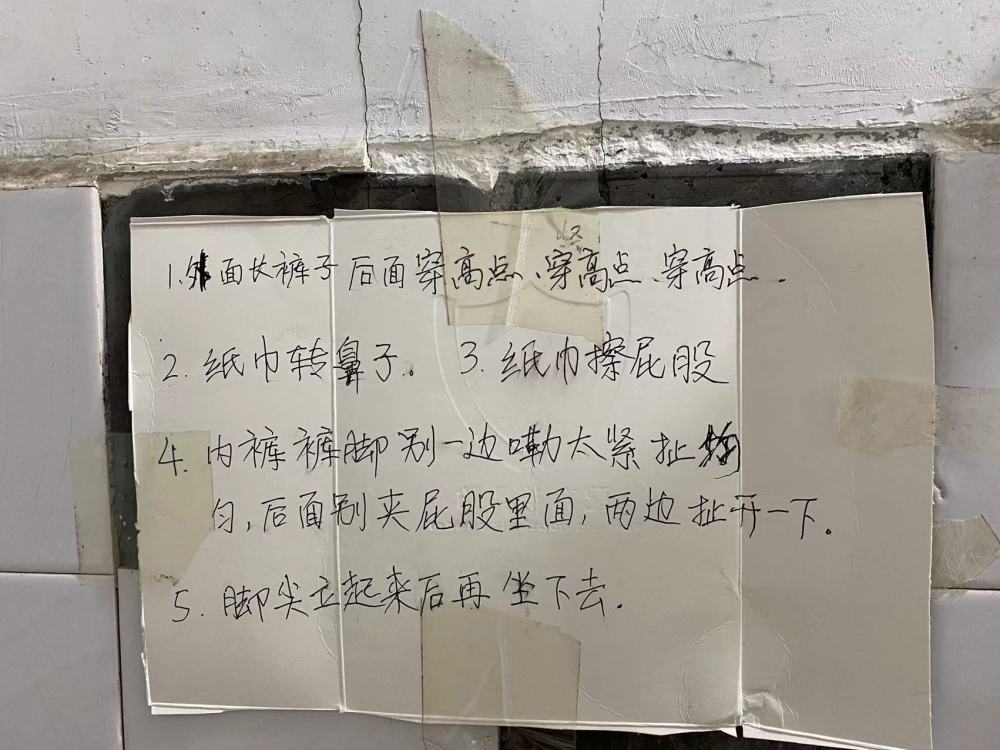 1.外面长裤子后面穿高点、穿高点、穿高点.
2.纸巾转鼻子。 3.纸巾擦屁股
4.内裤裤脚别一边嘞太紧扯
匀,后面别夹屁股里面,两边扯开一下。
5.脚尖立起来后再坐下去.